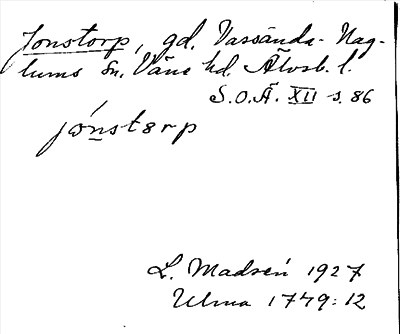 Jonstorp, gd. Vassända-Nag-
lums sn. Väne hd. Älvsb. l.
S.O.Ä. XII s. 86
jónstɵrp
L. Madsén 1927
Ulma 1779:12